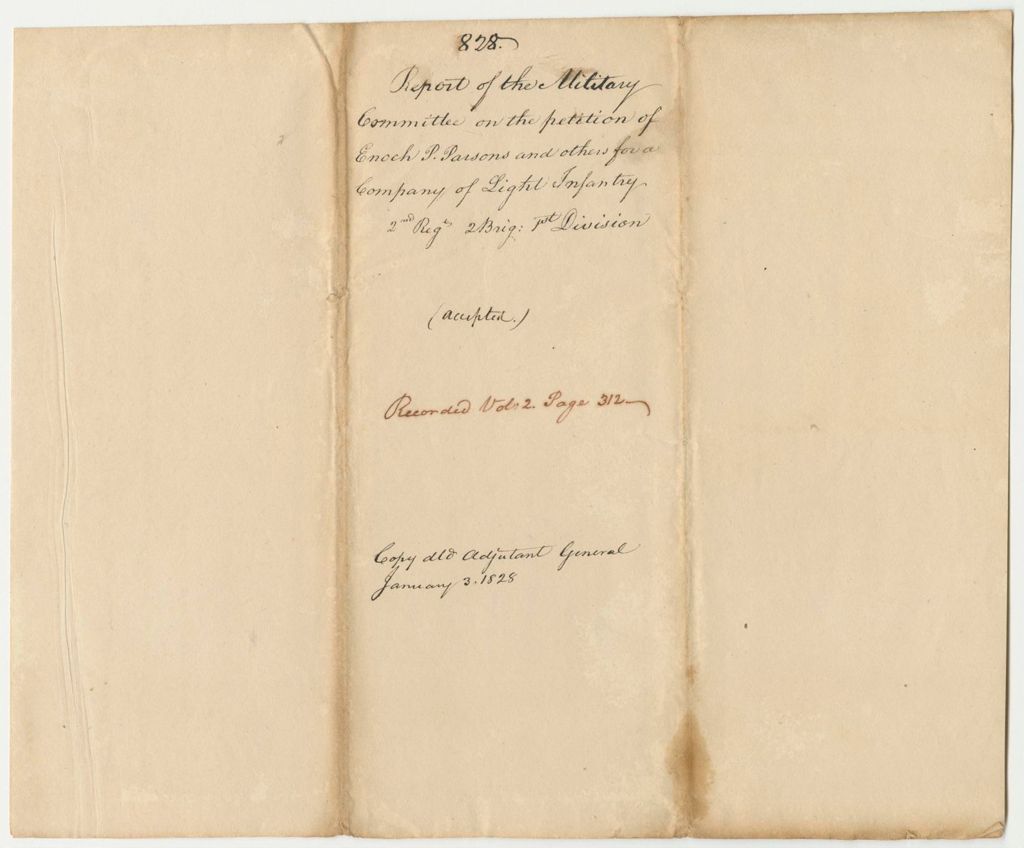 828.
Report of the Military
Committee on the petition of
Enoch P. Parsons and others for a
Company of Light Infantry
2nd Regt 2 Brig: 1st Division
(accepted.)
Recorded Vol: 2. Page 312
Copy dld Adjutant General
January 3. 1828